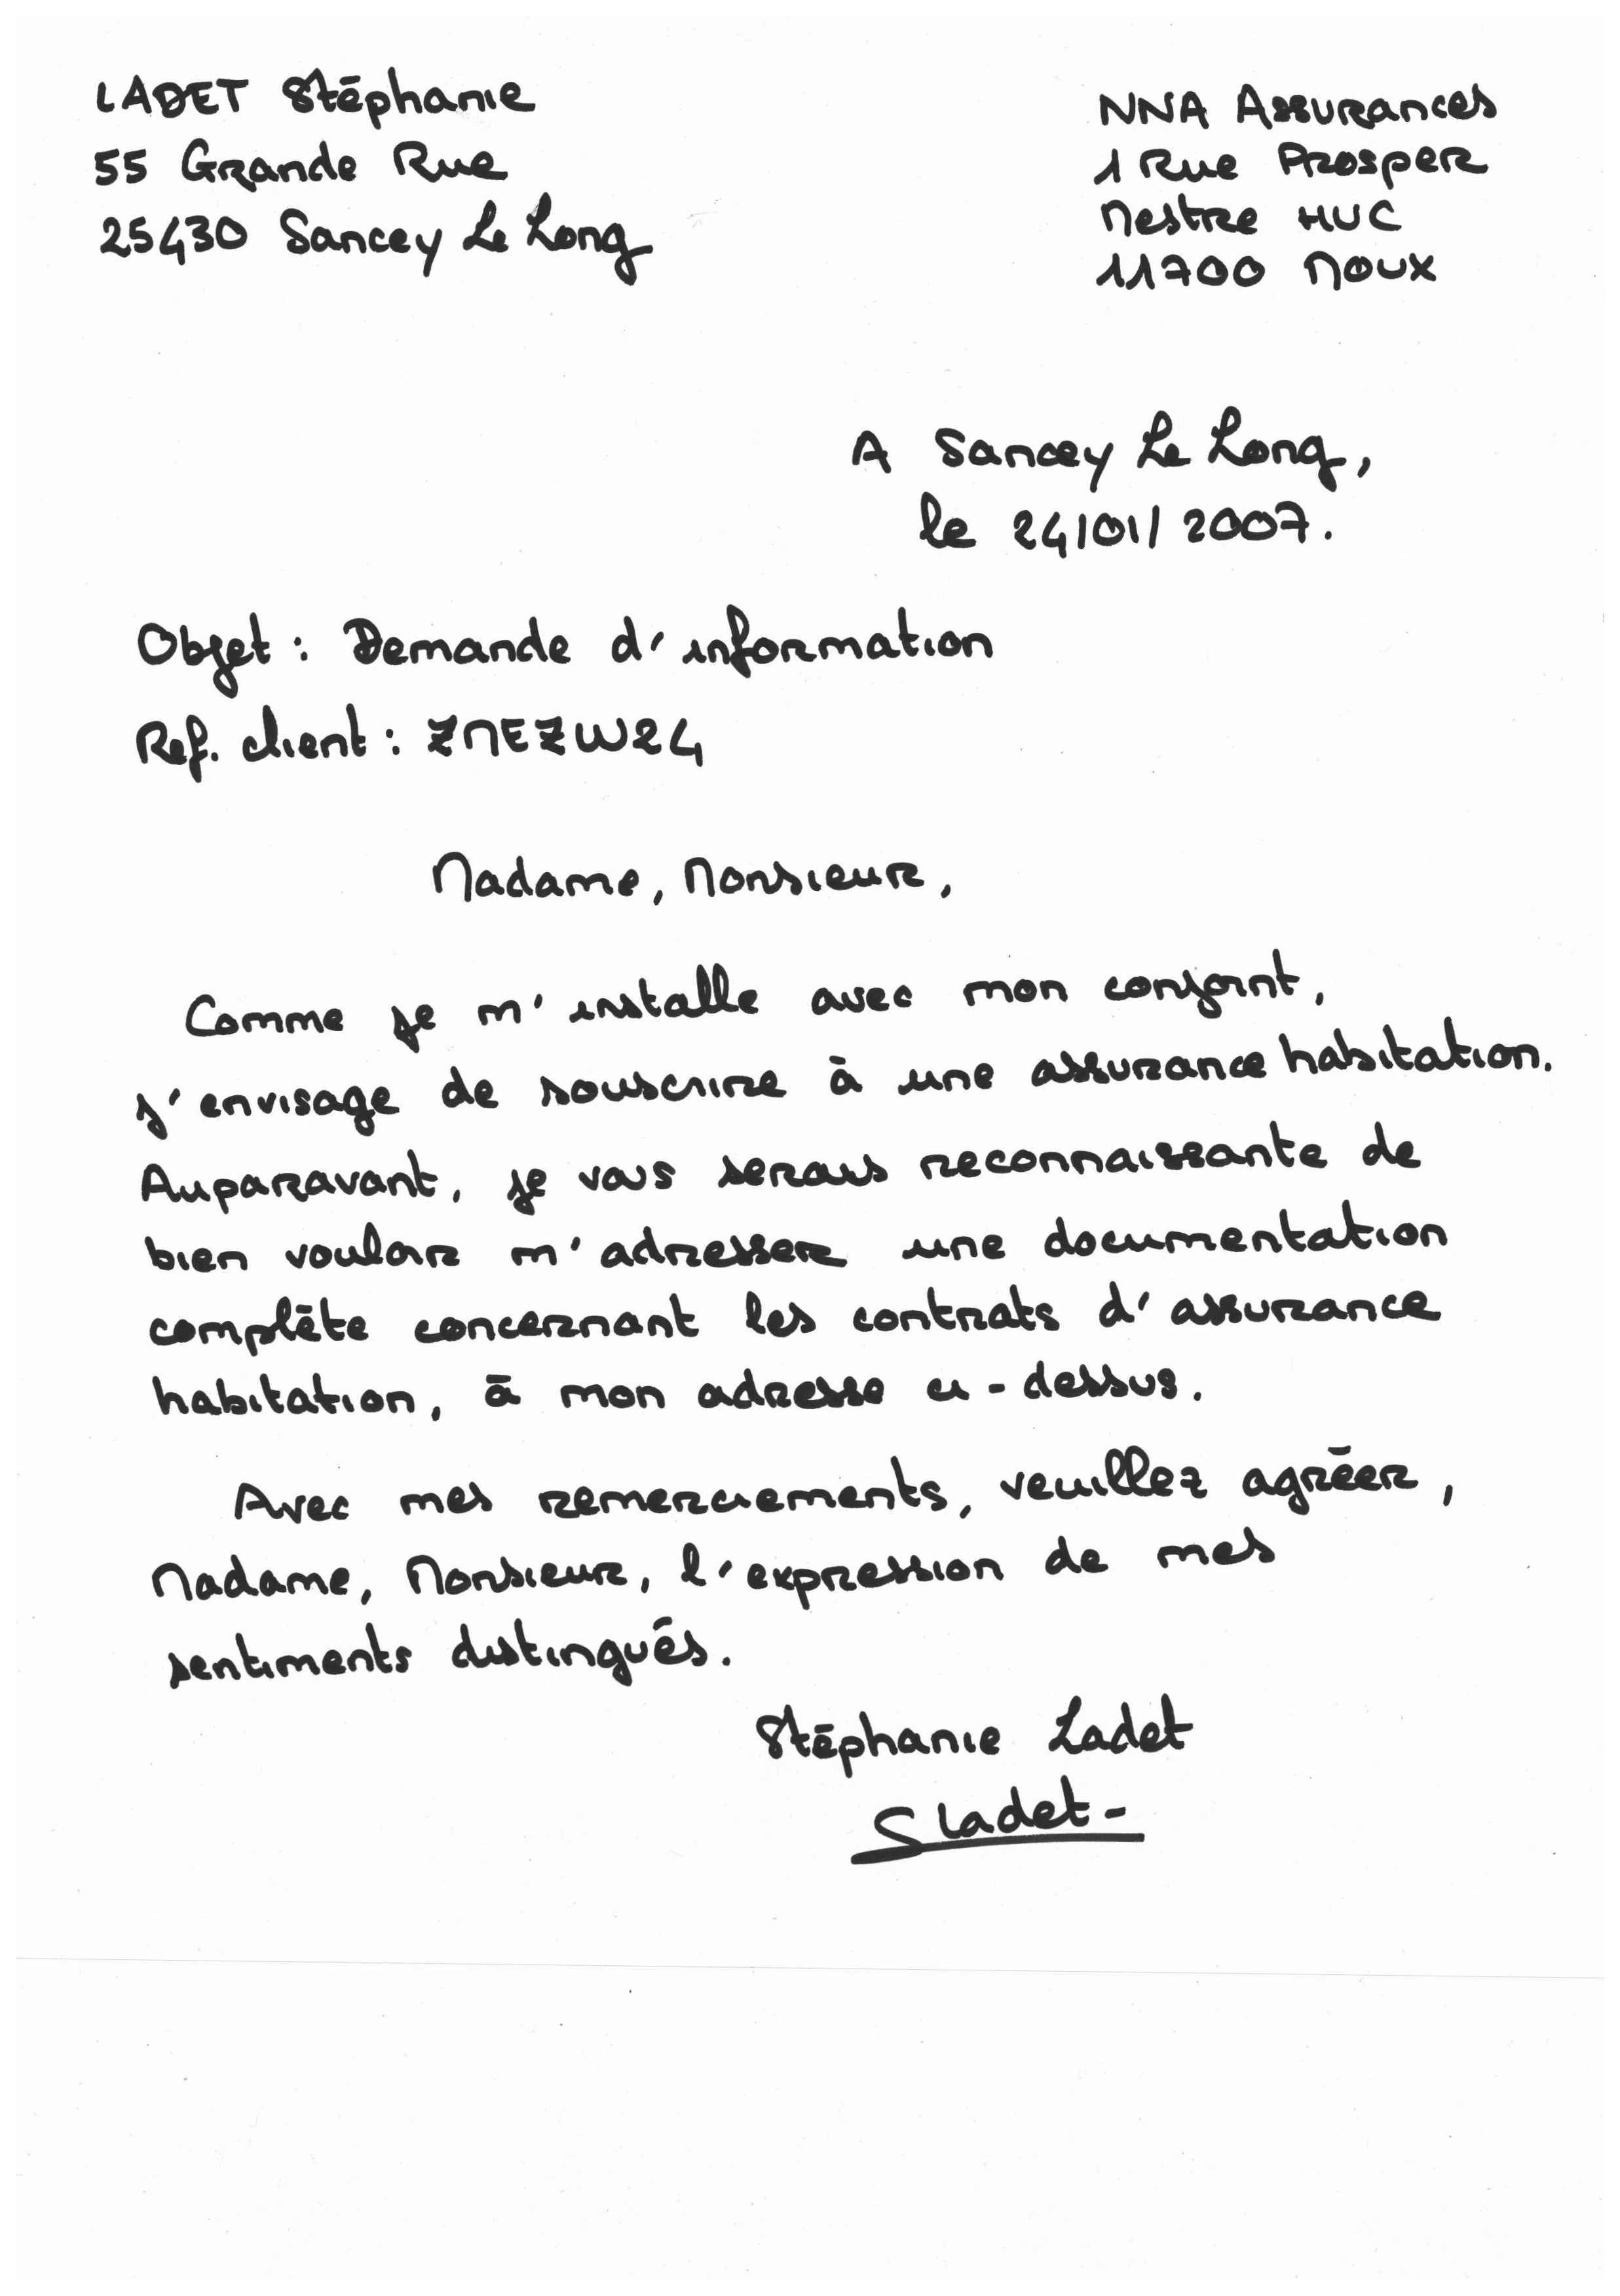 LADET Stéphanie
55 Grande Rue
25430 Sancey Le Long
NNA Assurances
1 Rue Prosper
Mestre HUC
11700 Moux
A Sancey Le Long,
le 24/01/2007.
Objet : Demande d'information
Ref. client : ZMEZW24
Madame, Monsieur,
Comme je m'installe avec mon conjoint,
j'envisage de souscrire à une assurance habitation.
Auparavant, je vous serais reconnaissante de
bien vouloir m'adresser une documentation
complète concernant les contrats d'assurance
habitation, à mon adresse ci-dessus.
Avec mes remerciements, veuillez agréer,
Madame, Monsieur, l'expression de mes
sentiments distingués.
Stéphanie Ladet
SLadet-